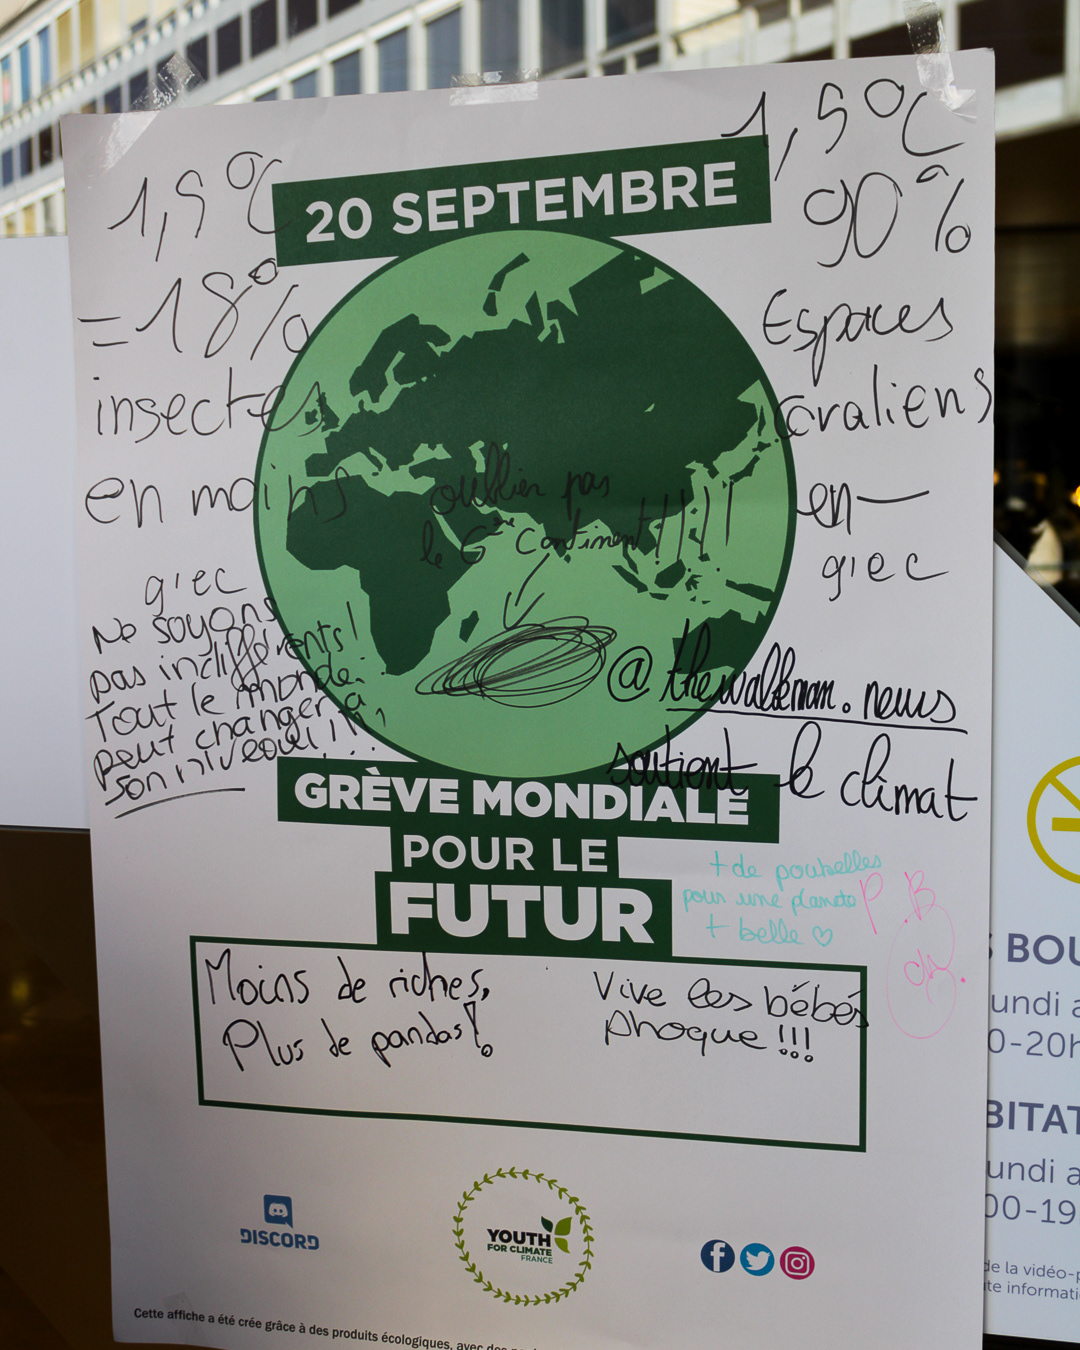 1,5°C
= 18%
insectes
en moins
giec
Ne soyons
pas indifférents!
Tout le monde
peut changer à
son niveau!!!
20 SEPTEMBRE
1,5°C
90%
Espaces
coraliens
en —
giec
oublier pas
le 6ème continent!!!!
@thewalkman.news
soutient le climat
GRÈVE MONDIALE
POUR LE
FUTUR
+ de poubelles
pour une planète
+ belle ♡
P.B
Moins de riches,
Plus de pandas!
Vive les bébés
phoque!!!
DISCORD
YOUTH
FOR CLIMATE
FRANCE
Cette affiche a été crée grâce à des produits écologiques, avec des
BOU
undi a
0-20h
BITAT
undi a
00-19
de la vidéo-p
te informati